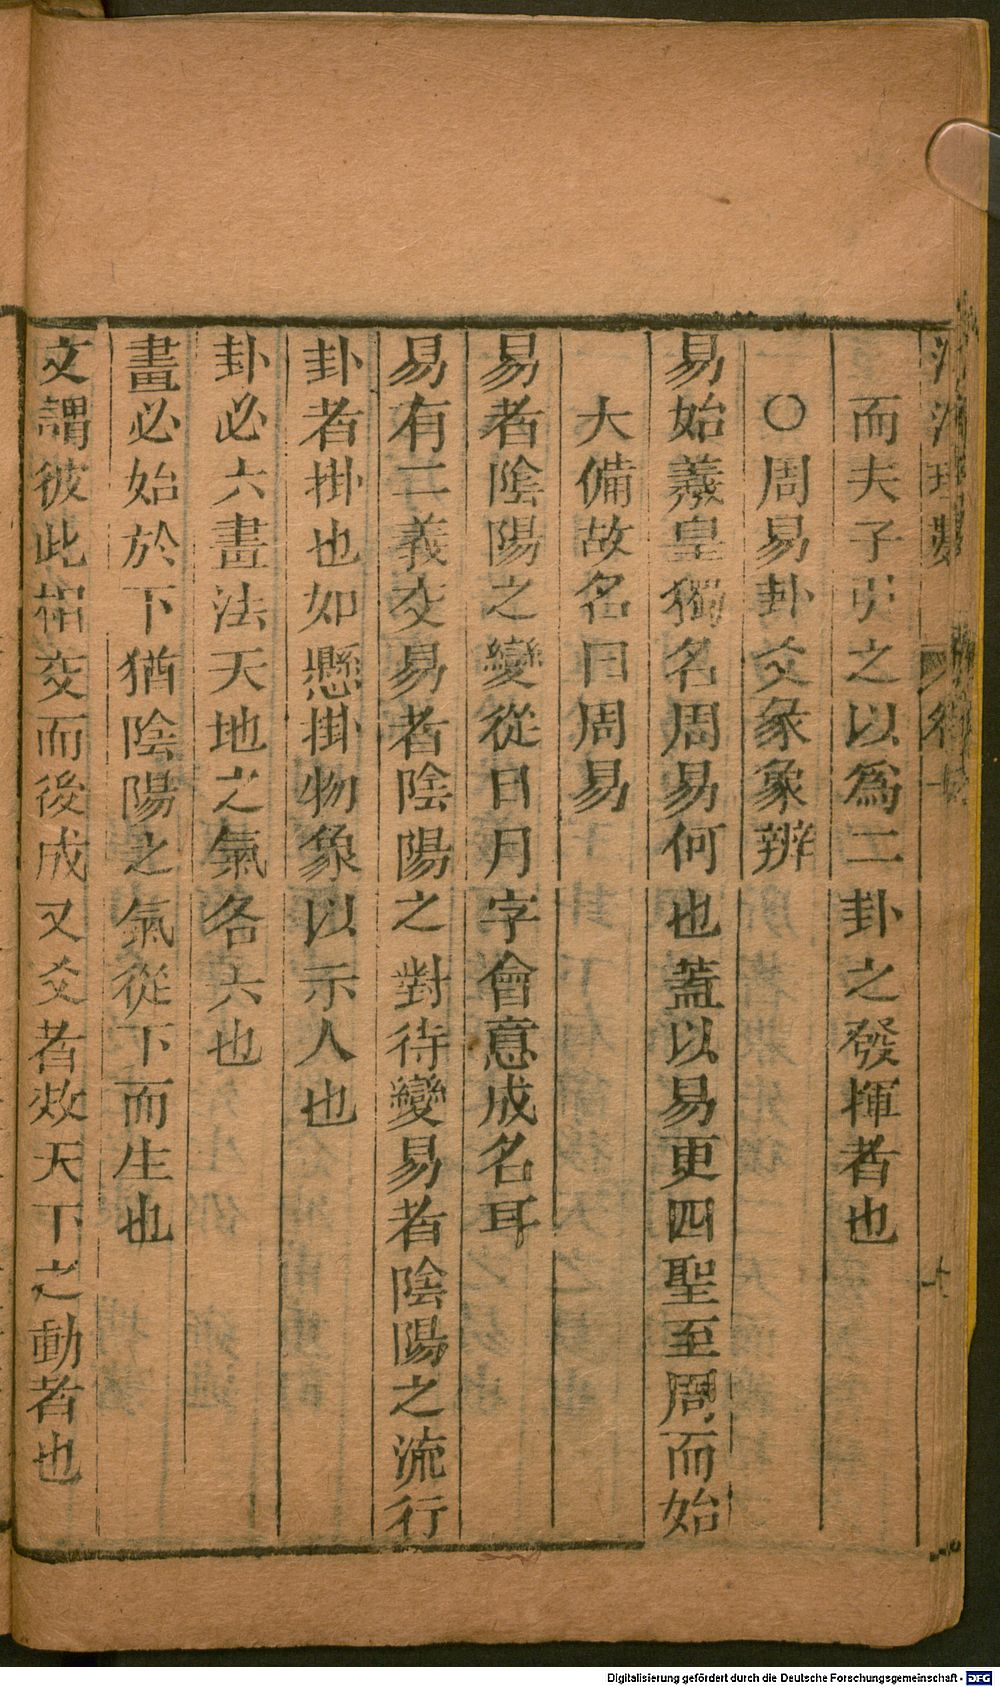 而夫子引之以為二卦之發揮者也
○周易卦爻彖象辨
易始羲皇獨名周易何也蓋以易更四聖至周而始
大備故名曰周易
易者陰陽之變從日月字會意成名耳
易有二義交易者陰陽之對待變易者陰陽之流行
卦者掛也如懸掛物象以示人也
卦必六畫法天地之氣各六也
畫必始於下猶陰陽之氣從下而生也
文謂彼此相交而後成又爻者效天下之動者也
Digitalisierung gefördert durch die Deutsche Forschungsgemeinschaft - DFG